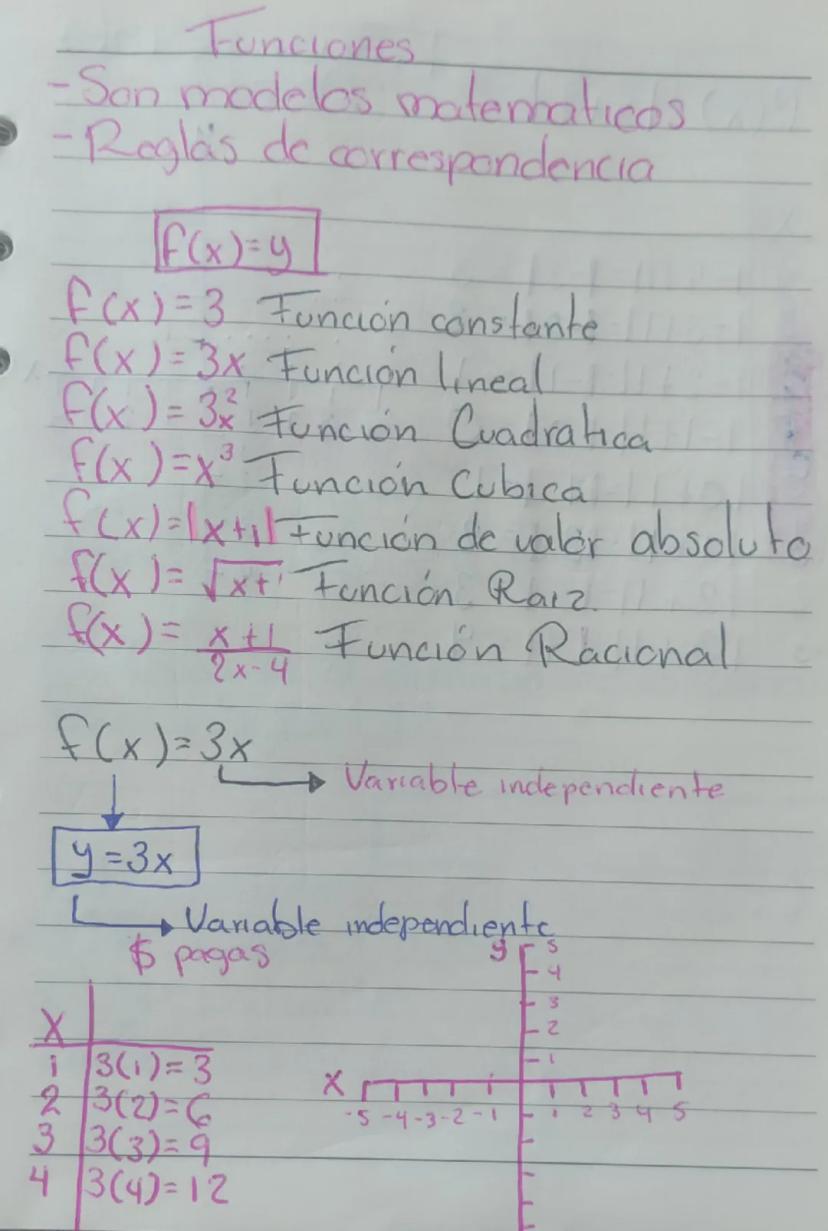 Funciones
- Son modelos matematicos
- Reglas de correspondencia
f(x)=y
f(x)=3 Función constante
f(x)=3x Función lineal
f(x)=3x² Función Cuadratica
f(x)=x³ Función Cubica
f(x)=|x+1| Función de valor absoluto
f(x)=√x+1 Función Raiz.
f(x)= x+1/2x-4 Función Racional
f(x)=3x
Variable independiente
y=3x
Variable independiente
$ pagas
x
1 3(1)=3
2 3(2)=6
3 3(3)=9
4 3(4)=12
y 5
4
3
2
1
x
-5 -4 -3 -2 -1 1 2 3 4 5